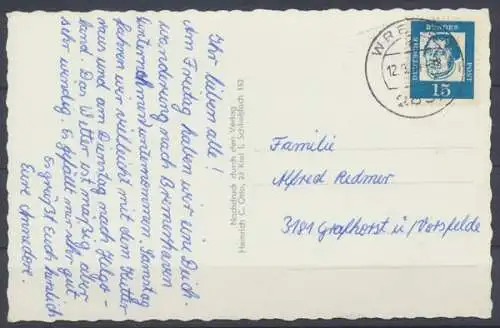 Ihr lieben alle!
Am Freitag haben wir eine Deich-
wanderung nach Bremerhaven
unternommen. Samstag
fahren wir vielleicht mit dem Kutter
raus und am Dienstag nach Helgo-
land. Das Wetter ist mäßig, aber
sehr windig. Es gefällt mir sehr gut
Es grüßt Euch herzlich
Eure Annedore.
Nachdruck durch den Verlag
Heinrich C. Otto, 23 Kiel 1, Schließfach 153
WRE
12.9.
DEUTSCHE
BUNDES
POST
15
Familie
Alfred Redmer
3181 Grafhorst ü/Vorsfelde